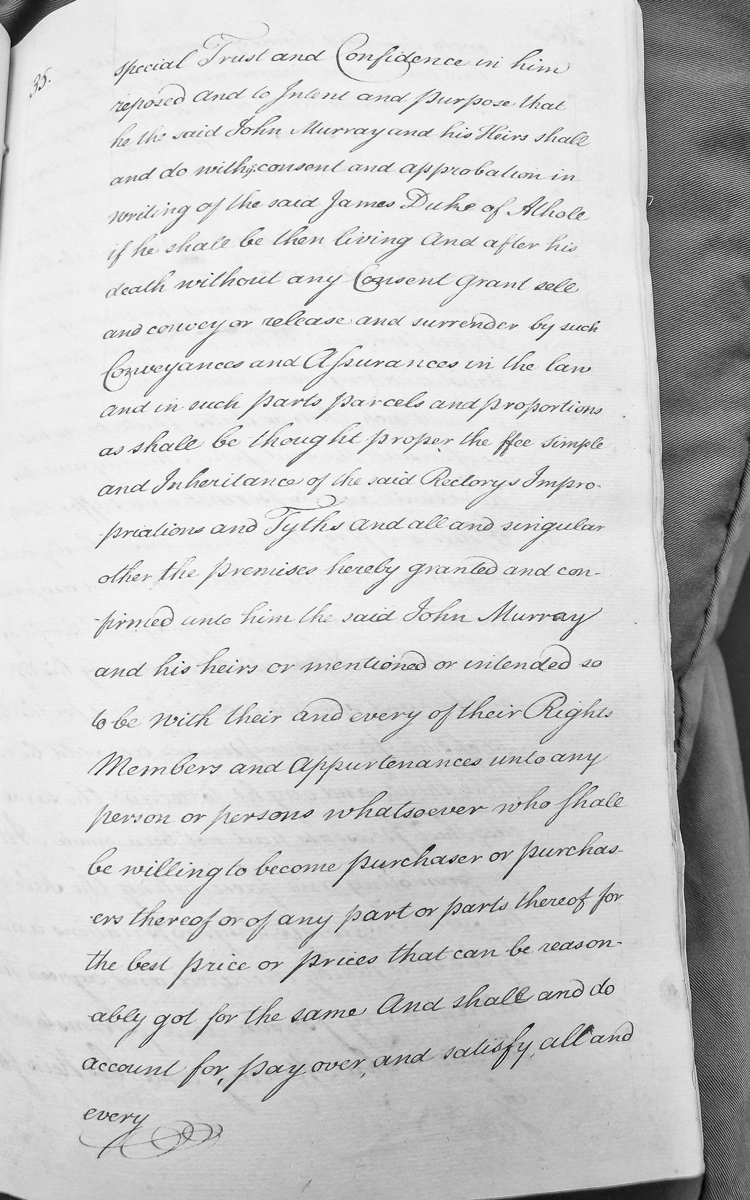 35.
special Trust and Confidence in him
reposed and to Intent and purpose that
he the said John Murray and his Heirs shall
and do with consent and approbation in
writing of the said James Duke of Athole
if he shall be then living And after his
death without any Consent Grant sell
and convey or release and surrender by such
Conveyances and Assurances in the law
and in such parts parcels and proportions
as shall be thought proper the ffee simple
and Inheritance of the said Rectorys Impro-
priations and Tyths and all and singular
other the premises hereby granted and con-
firmed unto him the said John Murray
and his heirs or mentioned or intended so
to be with their and every of their Rights
Members and Appurtenances unto any
person or persons whatsoever who shall
be willing to become purchaser or purchas-
ers thereof or of any part or parts thereof for
the best price or prices that can be reason-
ably got for the same And shall and do
account for, pay over, and satisfy, all and
every